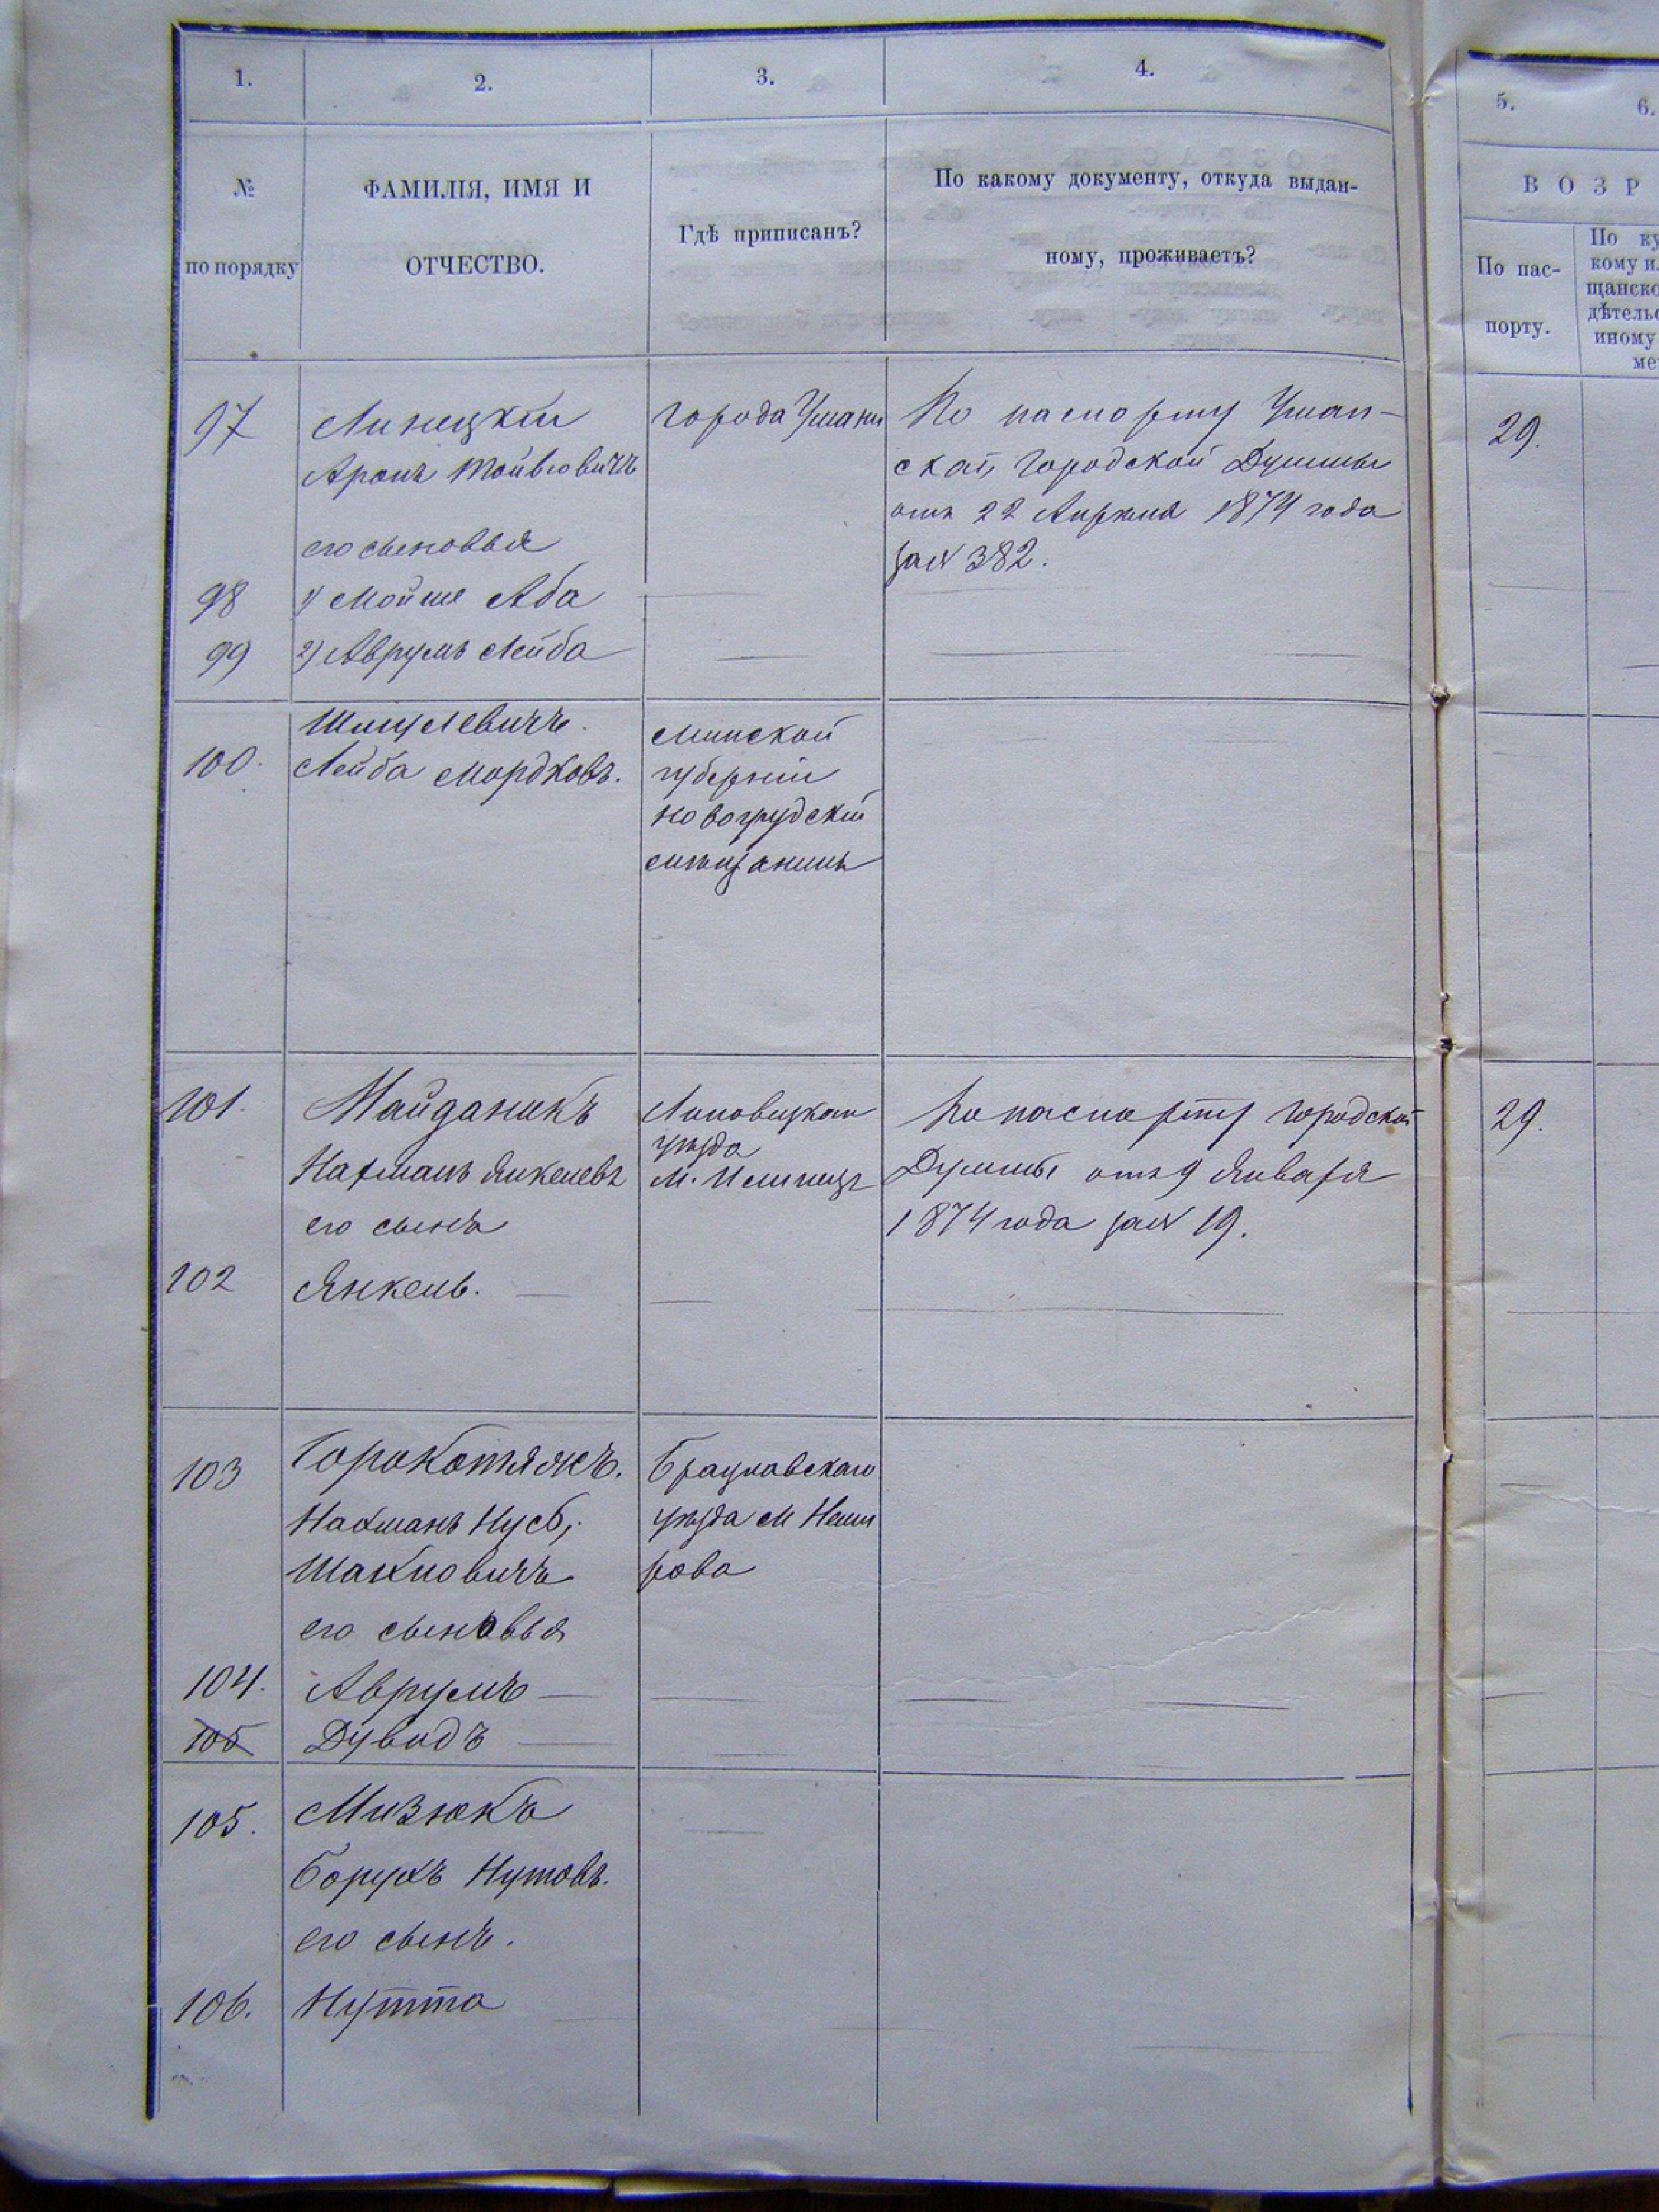 1. 2. 3. 4. 5. 6.
№ по порядку
ФАМИЛІЯ, ИМЯ И
ОТЧЕСТВО.
Гдѣ приписанъ?
По какому документу, откуда выдан-
ному, проживаетъ?
ВОЗР
По пас-
порту.
По ку
кому и
щанско
дѣтельс
иному
ме
97 Линецкій города Умани По паспорту Уман- 29.
Аронъ Тойвіовичъ ской Городской Думы
отъ 22 Апреля 1874 года
его сыновья за № 382.
98 1) Мойше Аба
99 2) Аврумъ Лейба
Шмулевичъ. Минской
100. Лейба Мордковъ. губерніи
Новогрудскій
мѣщанинъ
101. Майданикъ Липовецкаго По паспорту Городской 29.
уѣзда
Нахманъ Янкелевъ М. Илинецъ Думы отъ 9 Января
его сынъ 1874 года за № 19.
102 Янкель.
103 Горокотяжъ. Брацлавскаго
Нахманъ Нусъ, уѣзда М Неми
Шахновичъ рова
его сыновья
104. Аврумъ
105 Дувидъ
105. Мизюкъ
Борухъ Нутовъ.
его сынъ.
106. Нутта